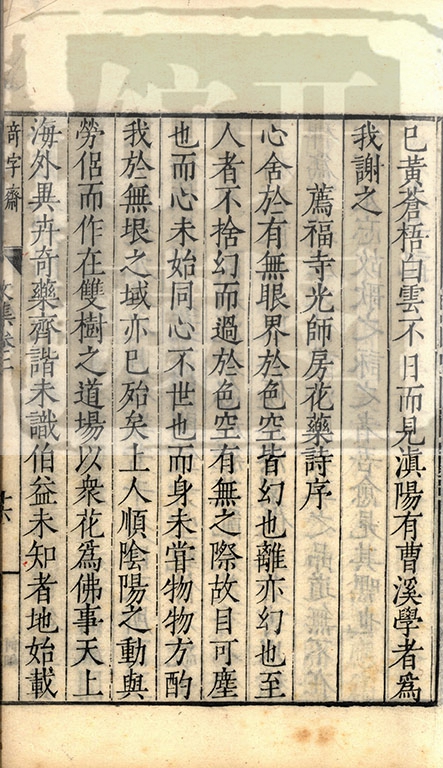 已黃蒼梧白雲不日而見滇陽有曹溪學者爲
我謝之
薦福寺光師房花藥詩序
心舍於有無眼界於色空皆幻也離亦幻也至
人者不捨幻而過於色空有無之際故目可塵
也而心未始同心不世也而身未甞物物方酌
我於無垠之域亦已殆矣上人順陰陽之動與
勞侶而作在雙樹之道場以衆花爲佛事天上
海外異卉奇藥齊諧未識伯益未知者地始載
奇字齋
文集卷